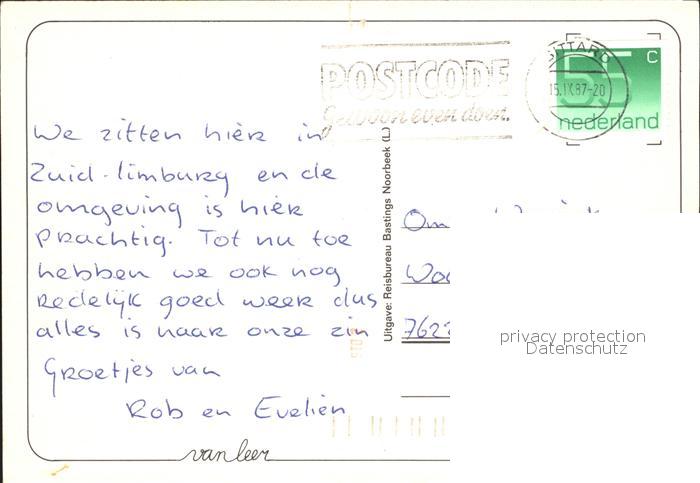 We zitten hier in
Zuid-limburg en de
omgeving is hier
prachtig. Tot nu toe
hebben we ook nog
redelijk goed weer dus
alles is naar onze zin
Groetjes van
Rob en Evelien
van leer
Uitgave: Reisbureau Bastings Noorbeek (L.)
POSTCODE
Gewoon even doen.
SITTARD
15.IX.87-20
55 c
nederland
7622
privacy protection
Datenschutz